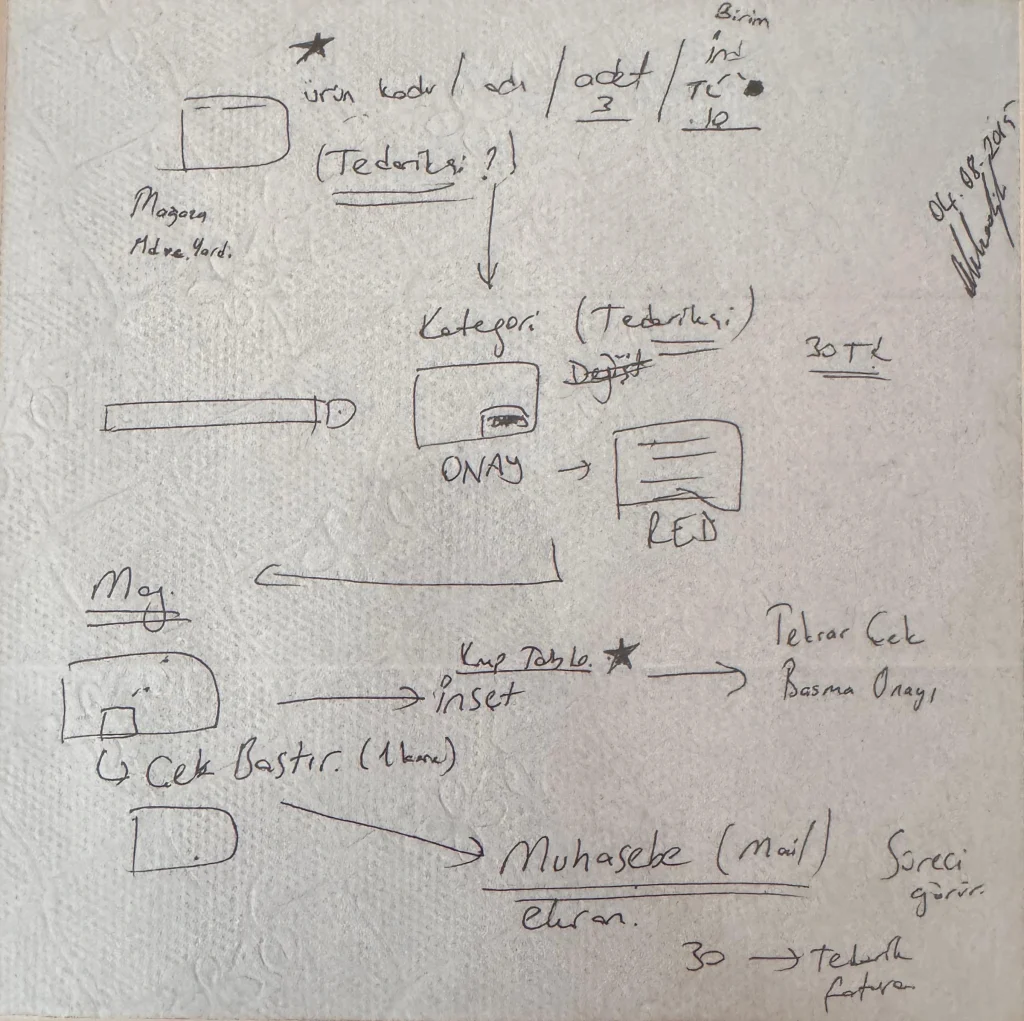 Birim
ürün kodu / adı / adet / ind
3
TL
10
(Tedarikçi ?)
Mağaza
Md ve Yard.
04.08.2015
Kategori (Tedarikçi)
Değişt
30 TL
ONAY →
RED
Mağ.
Kmp Tablo. ★
inset
Tekrar Çek
Basma Onayı
Çek Bastır. (1 kere)
Muhasebe (Mail)
ekran.
Süreci
görür.
30 → Tedarik
fatura